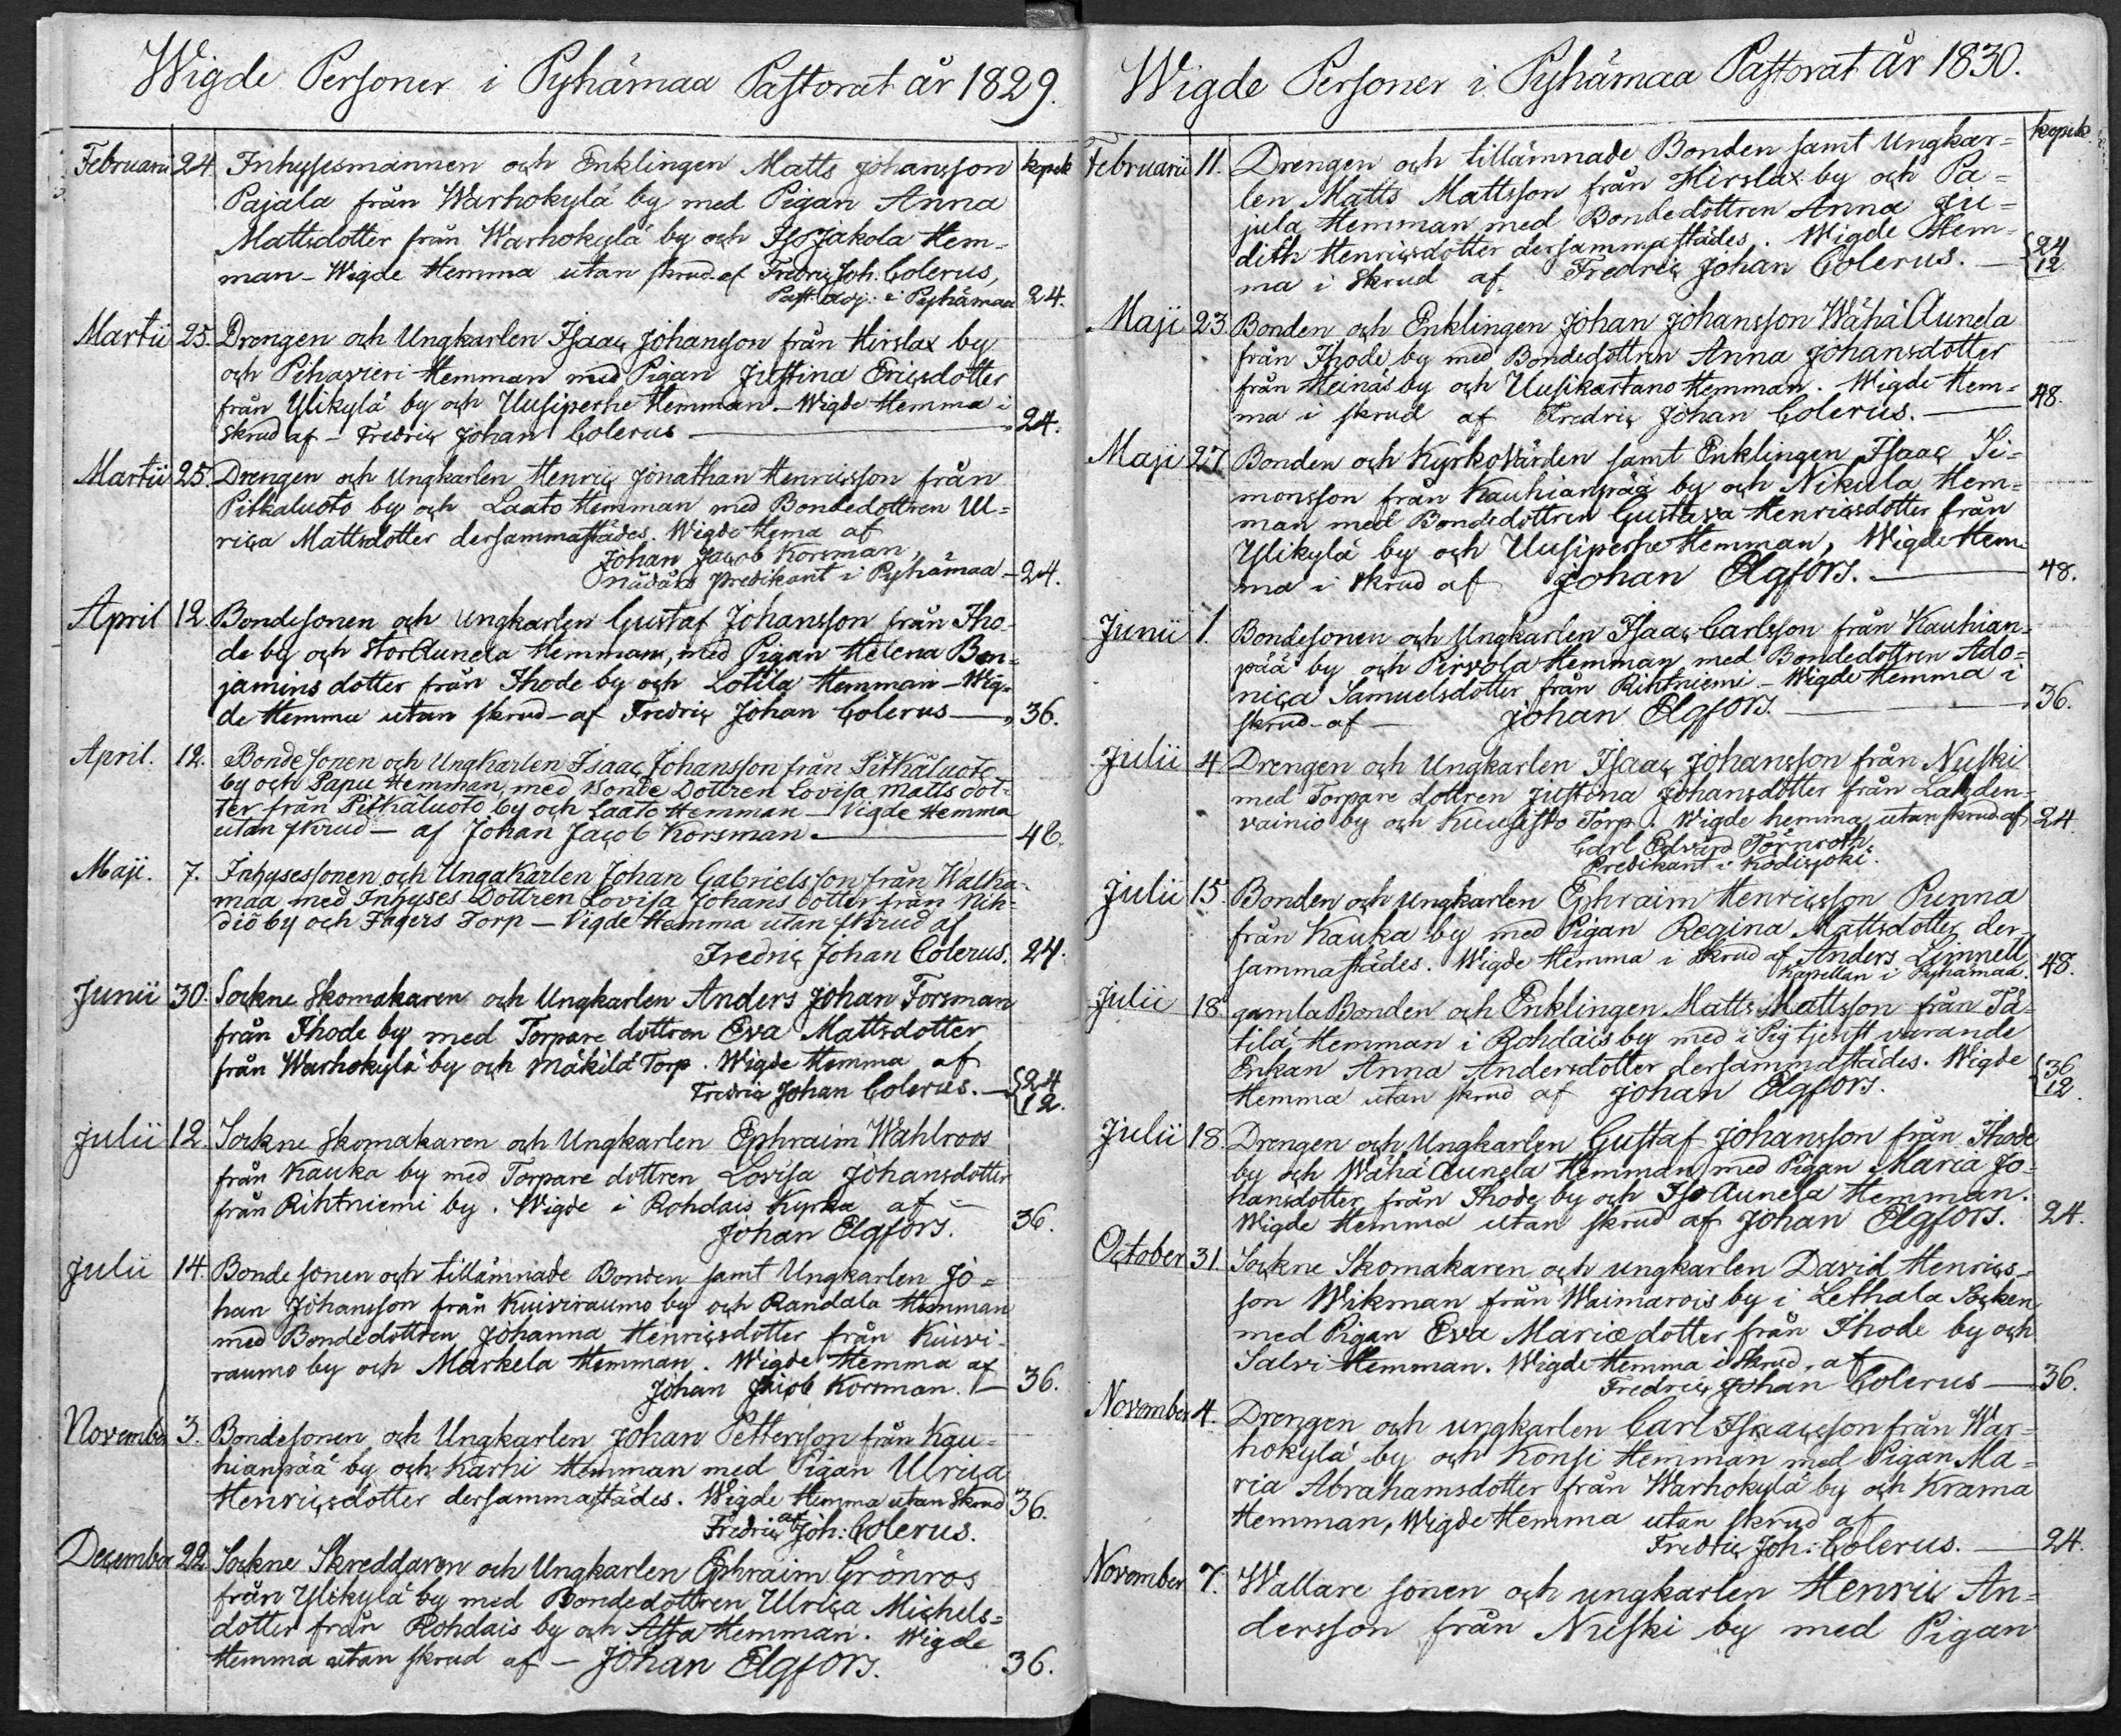 Wigde Personer i Pyhämaa Pastorat år 1829.
Februarii 24. Inhysesmannen och Enklingen Matts Johansson kopek
Pajala från Warhokylä by med Pigan Anna
Mattsdotter från Warhokylä by och IsoJakola Hem-
man - Wigde Hemma utan skrud af Fredric Joh. Colerus,
Past. Adj: i Pyhämaa 24.
Martii 25. Drengen och Ungkarlen Isaac Johansson från Hirslax by
och Pihavieri Hemman med Pigan Justina Ericsdotter
från Ylikylä by och Uusiperhe Hemman - Wigde Hemma i
skrud af - Fredric Johan Colerus — 24.
Martii 25. Drengen och Ungkarlen Henric Jonathan Henricsson från
Pitkaluoto by och Laato Hemman med Bondedottren Ul-
rica Mattsdotter dersammastädes. Wigde Hema af
Johan Jacob Korsman,
Onådårs predikant i Pyhämaa — 24.
April 12. Bondesonen och Ungkarlen Gustaf Johansson från Iho-
de by och StorAunela Hemman, med Pigan Helena Ben-
jamins dotter från Ihode by och Lotila Hemman - Wig-
de Hemma utan skrud - af Fredric Johan Colerus — 36.
April. 12. Bonde Sonen och Ungkarlen Isaac Johansson från Pitkäluoto
by och Papu Hemman, med Bonde Dottren Lovisa Matts dot-
ter från Pitkäluoto by och Laato Hemman - Vigde Hemma
utan skrud - af Johan Jacob Korsman — 48.
Maji. 7. Inhysessonen och Ungakarlen Johan Gabriels son från Walka-
maa med Inhyses Dottren Lovisa Johans Dotter från Nih-
diö by och Fagers Torp - Vigde Hemma utan skrud af
Fredric Johan Colerus. 24.
Junii 30. Sockne Skomakaren och Ungkarlen Anders Johan Forsman
från Ihode by med Torpare dottren Eva Mattsdotter
från Warhokylä by och Mäkilä Torp. Wigde Hemma af
Fredric Johan Colerus. — {24
12.
Julii 12. Sockne Skomakaren och Ungkarlen Ephraim Wahlroos
från Kauka by med Torpare dottren Lovisa Johansdotter
från Rihtniemi by. Wigde i Rohdais Kyrka af -
Johan Elgfors. 36.
Julii 14. Bonde sonen och tillämnade Bonden samt Ungkarlen Jo-
han Johansson från Kuiviraumo by och Randala Hemman
med Bondedottren Johanna Henricsdotter från Kuivi-
raumo by och Markela Hemman. Wigde Hemma af
Johan Jacob Korsman. — 36.
November 3. Bondesonen och Ungkarlen Johan Pettersson från Kau-
hianpää by och Karhi Hemman med Pigan Ulrica
Henricsdotter dersammastädes. Wigde Hemma utan Skrud 36.
af Fredric Joh: Colerus.
December 22. Sockne Skreddaren och Ungkarlen Ephraim Grönros
från Ylikylä by med Bondedottren Ulrica Michels-
dotter från Rohdais by och Assa Hemman. Wigde
Hemma utan skrud af - Johan Elgfors. 36.
Wigde Personer i Pyhämaa Pastorat år 1830.
kopek
Februarii 11. Drengen och tillämnade Bonden samt Ungkar-
len Matts Mattsson från Hirslax by och Pa-
jula Hemman med Bondedottren Anna Ju-
dith Henricsdotter dersammastädes. Wigde Hem-
ma i Skrud af Fredric Johan Colerus. — {24
12.
Maji 23. Bonden och Enklingen Johan Johansson Wähä Aunela
från Ihode by med Bondedottren Anna Johansdotter
från Heinäs by och Uusikartano Hemman. Wigde Hem-
ma i skrud af Fredric Johan Colerus. — 48.
Maji 27. Bonden och Kyrkovärden samt Enklingen Isaac Si-
monsson från Kauhianpää by och Nikula Hem-
man med Bondedottren Gustava Henricsdotter från
Ylikylä by och Uusiperhe Hemman, Wigde Hem-
ma i skrud af Johan Elgfors. — 48.
Junii 1. Bondesonen och Ungkarlen Isaac Carlsson från Kauhian-
pää by och Pirvola Hemman med Bondedottren Ado-
nica Samuelsdotter från Rihtniemi - Wigde Hemma i
skrud - af - Johan Elgfors. — 36.
Julii 4. Drengen och Ungkarlen Isaac Johansson från Nuski
med Torpare dottren Justina Johansdotter från Lahden-
vainio by och Kuusisto Torp. Wigde hemma utan skrud af 24.
Carl Edvard Törnroth,
Predikant i Kodisjoki.
Julii 15. Bonden och Ungkarlen Ephraim Henricsson Punna
från Kauka by med Pigan Regina Mattsdotter der-
sammastädes. Wigde Hemma i Skrud af Anders Linnell
Kapellan i Pyhämaa. 48.
Julii 18. gamla Bonden och Enklingen Matts Mattsson från Tä-
tilä Hemman i Rohdais by med i Pigtjenst varande
Enkan Anna Andersdotter dersammastädes. Wigde
Hemma utan skrud af Johan Elgfors. {36
12.
Julii 18. Drengen och Ungkarlen Gustaf Johansson från Ihode
by och Wähä Aunela Hemman med Pigan Maria Jo-
hansdotter från Ihode by och Iso Aunela Hemman.
Wigde Hemma utan skrud af Johan Elgfors. 24.
October 31. Sockne Skomakaren och ungkarlen David Henrics-
son Wikman från Waimarois by i Lethala Socken
med Pigan Eva Mariædotter från Ihode by och
Salvi Hemman. Wigde Hemma i Skrud, af
Fredric Johan Colerus — 36.
November 4. Drengen och ungkarlen Carl Isaacsson från War-
hokylä by och Konsi Hemman med Pigan Ma-
ria Abrahamsdotter från Warhokylä by och Krama
Hemman, Wigde Hemma utan skrud af
Fredric Joh: Colerus. — 24.
November 7. Wallare sonen och ungkarlen Henric An-
dersson från Nuski by med Pigan